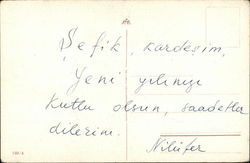 Şefik, kardeşim,
Yeni yılınızı
Kutlu olsun, saadetler
dilerim.
Nilüfer